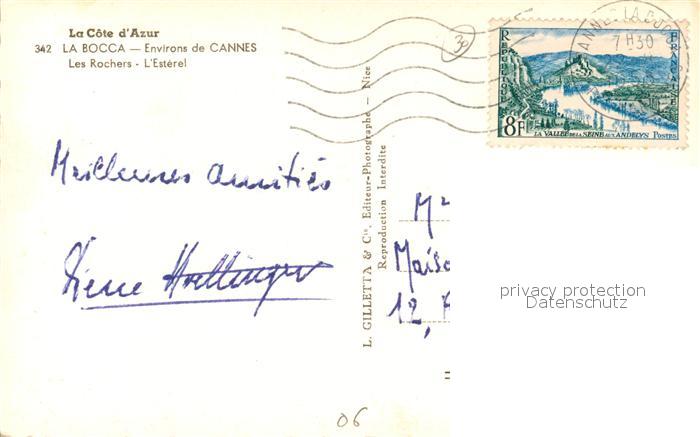 La Côte d'Azur
342 LA BOCCA — Environs de CANNES
Les Rochers - L'Estérel
30
7H30
REPUBLIQUE
FRANÇAISE
8F
LA VALLÉE DE LA SEINE AUX ANDELYS Postes
Meilleures amitiés
Pierre
L. GILLETTA & Cie, Editeur-Photographe — Nice
Reproduction Interdite
Mr
Maiso
12,
privacy protection
Datenschutz
06